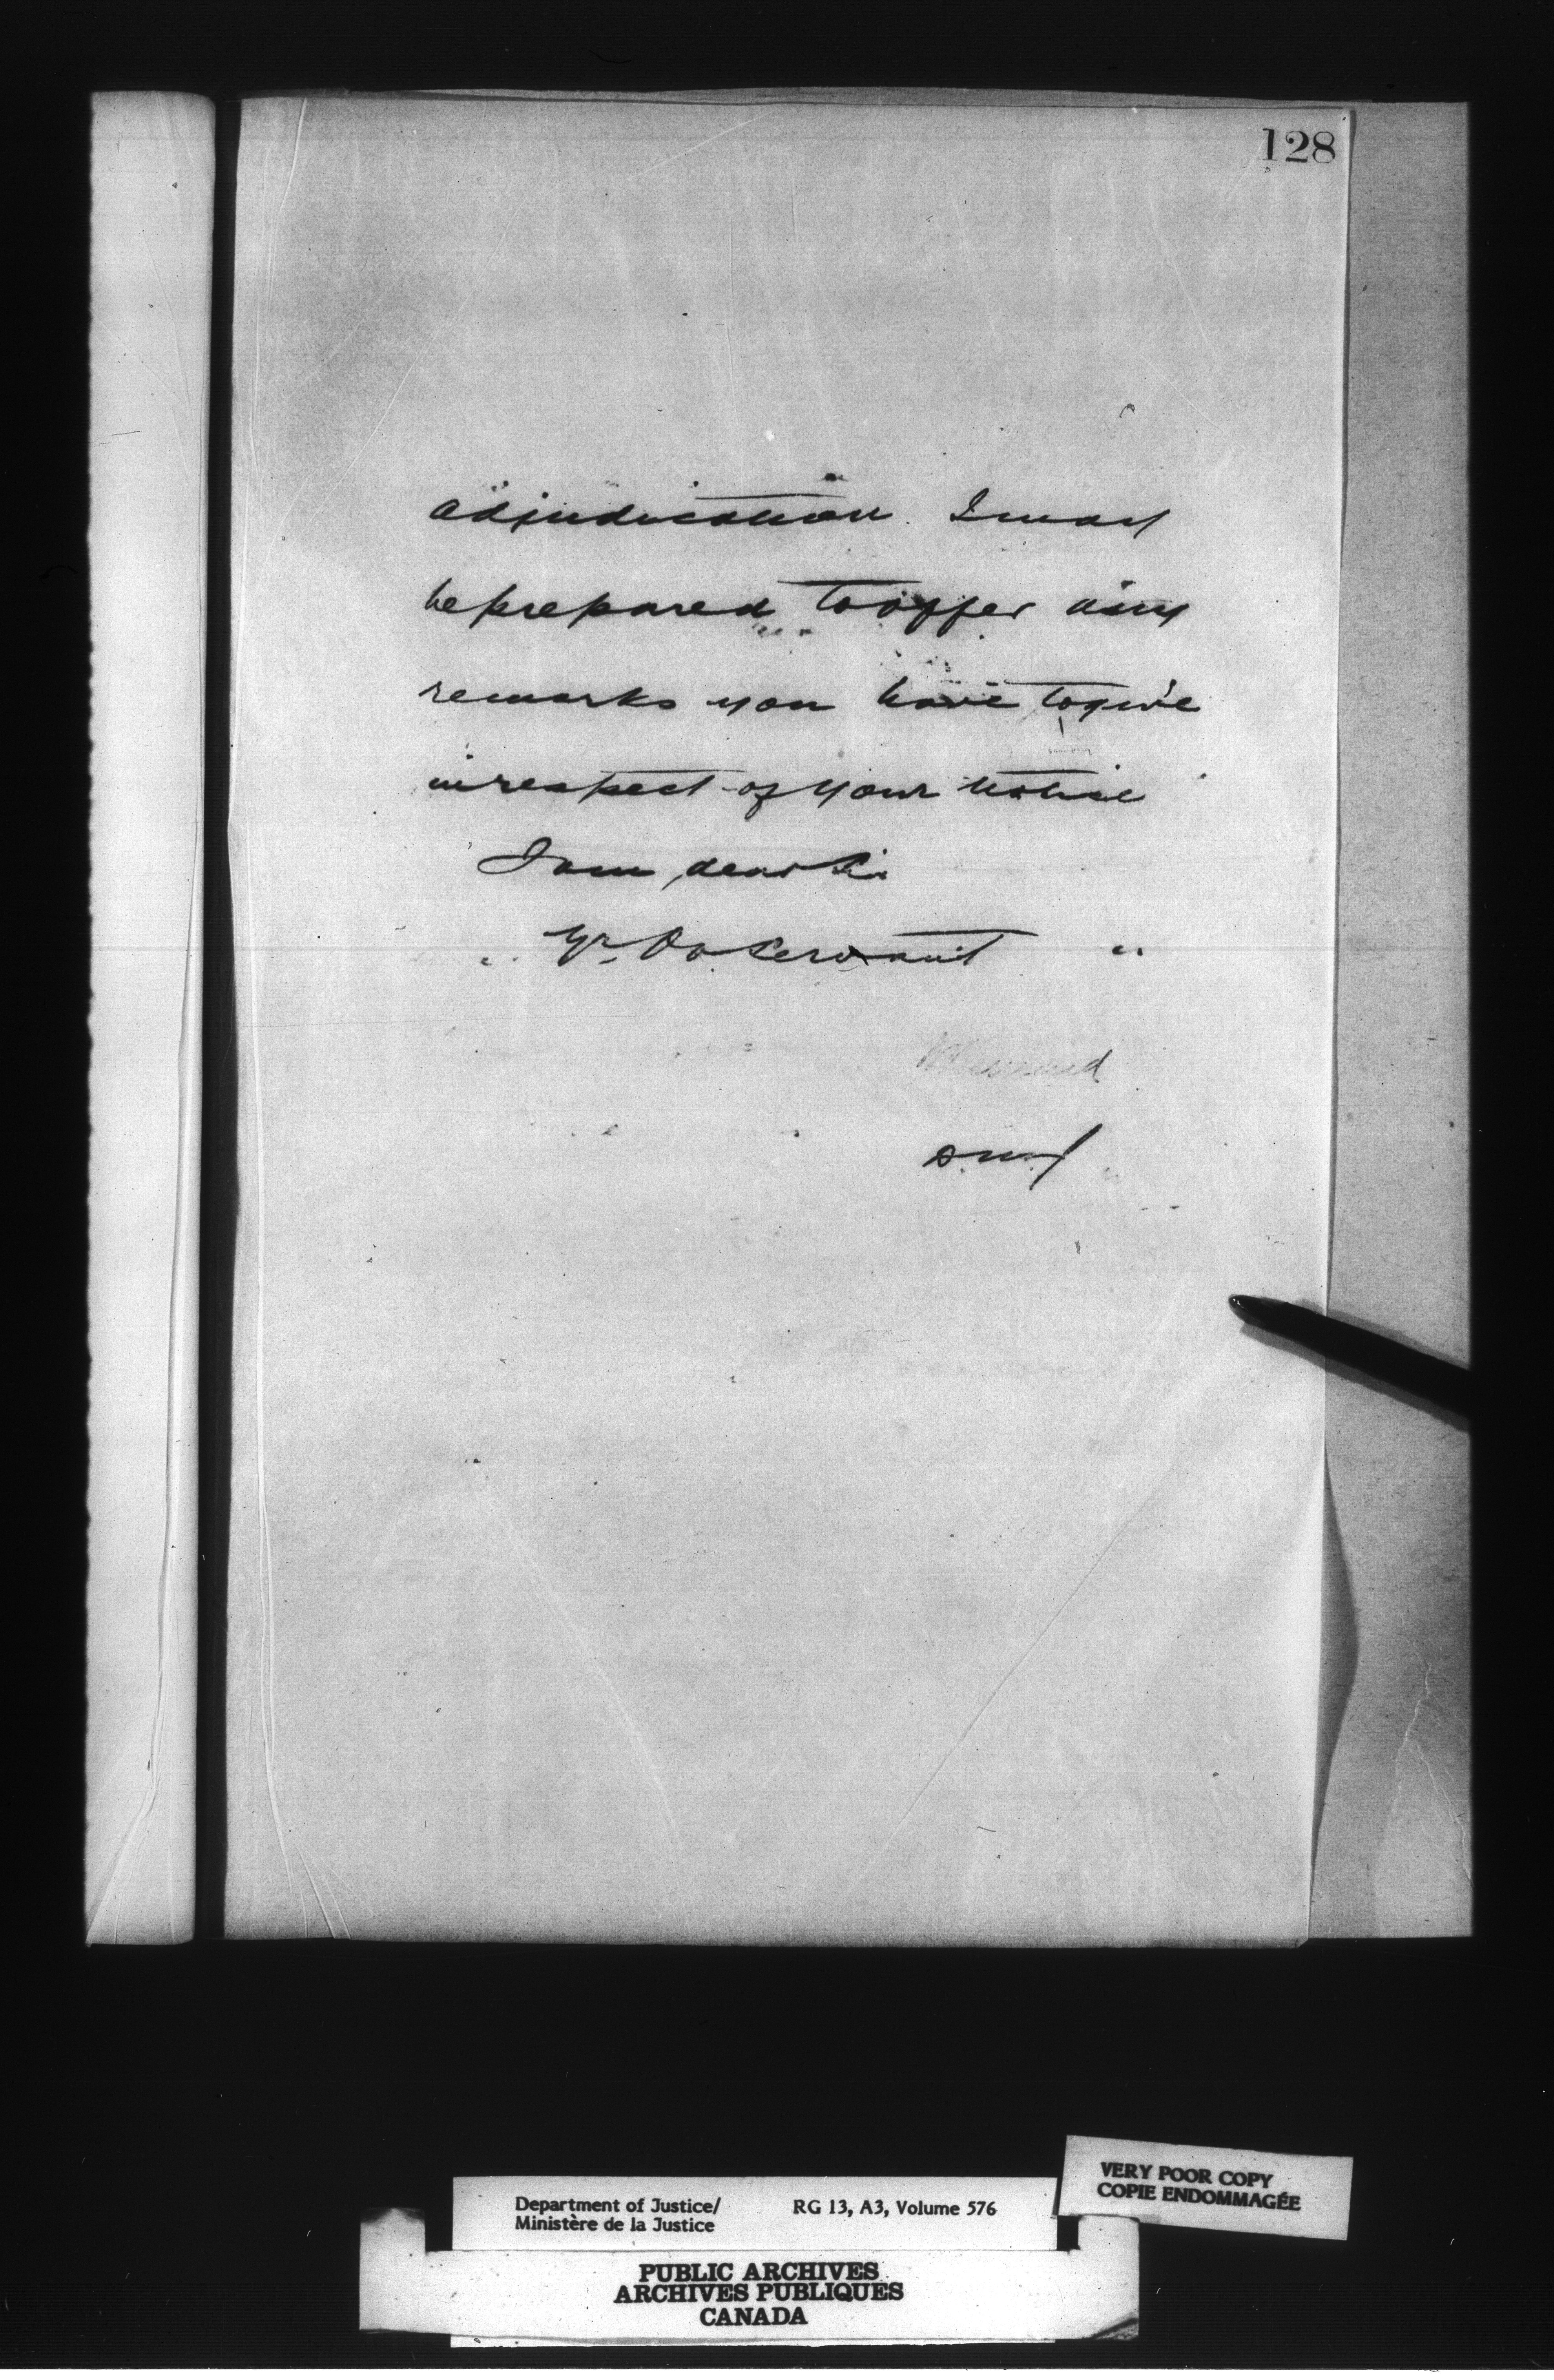 128
adjudication. I may
be prepared to offer any
remarks you have to give
in respect of your notice
I am, dear Sir
Yr. Ob Servant
VERY POOR COPY
COPIE ENDOMMAGÉE
Department of Justice/ RG 13, A3, Volume 576
Ministère de la Justice
PUBLIC ARCHIVES
ARCHIVES PUBLIQUES
CANADA